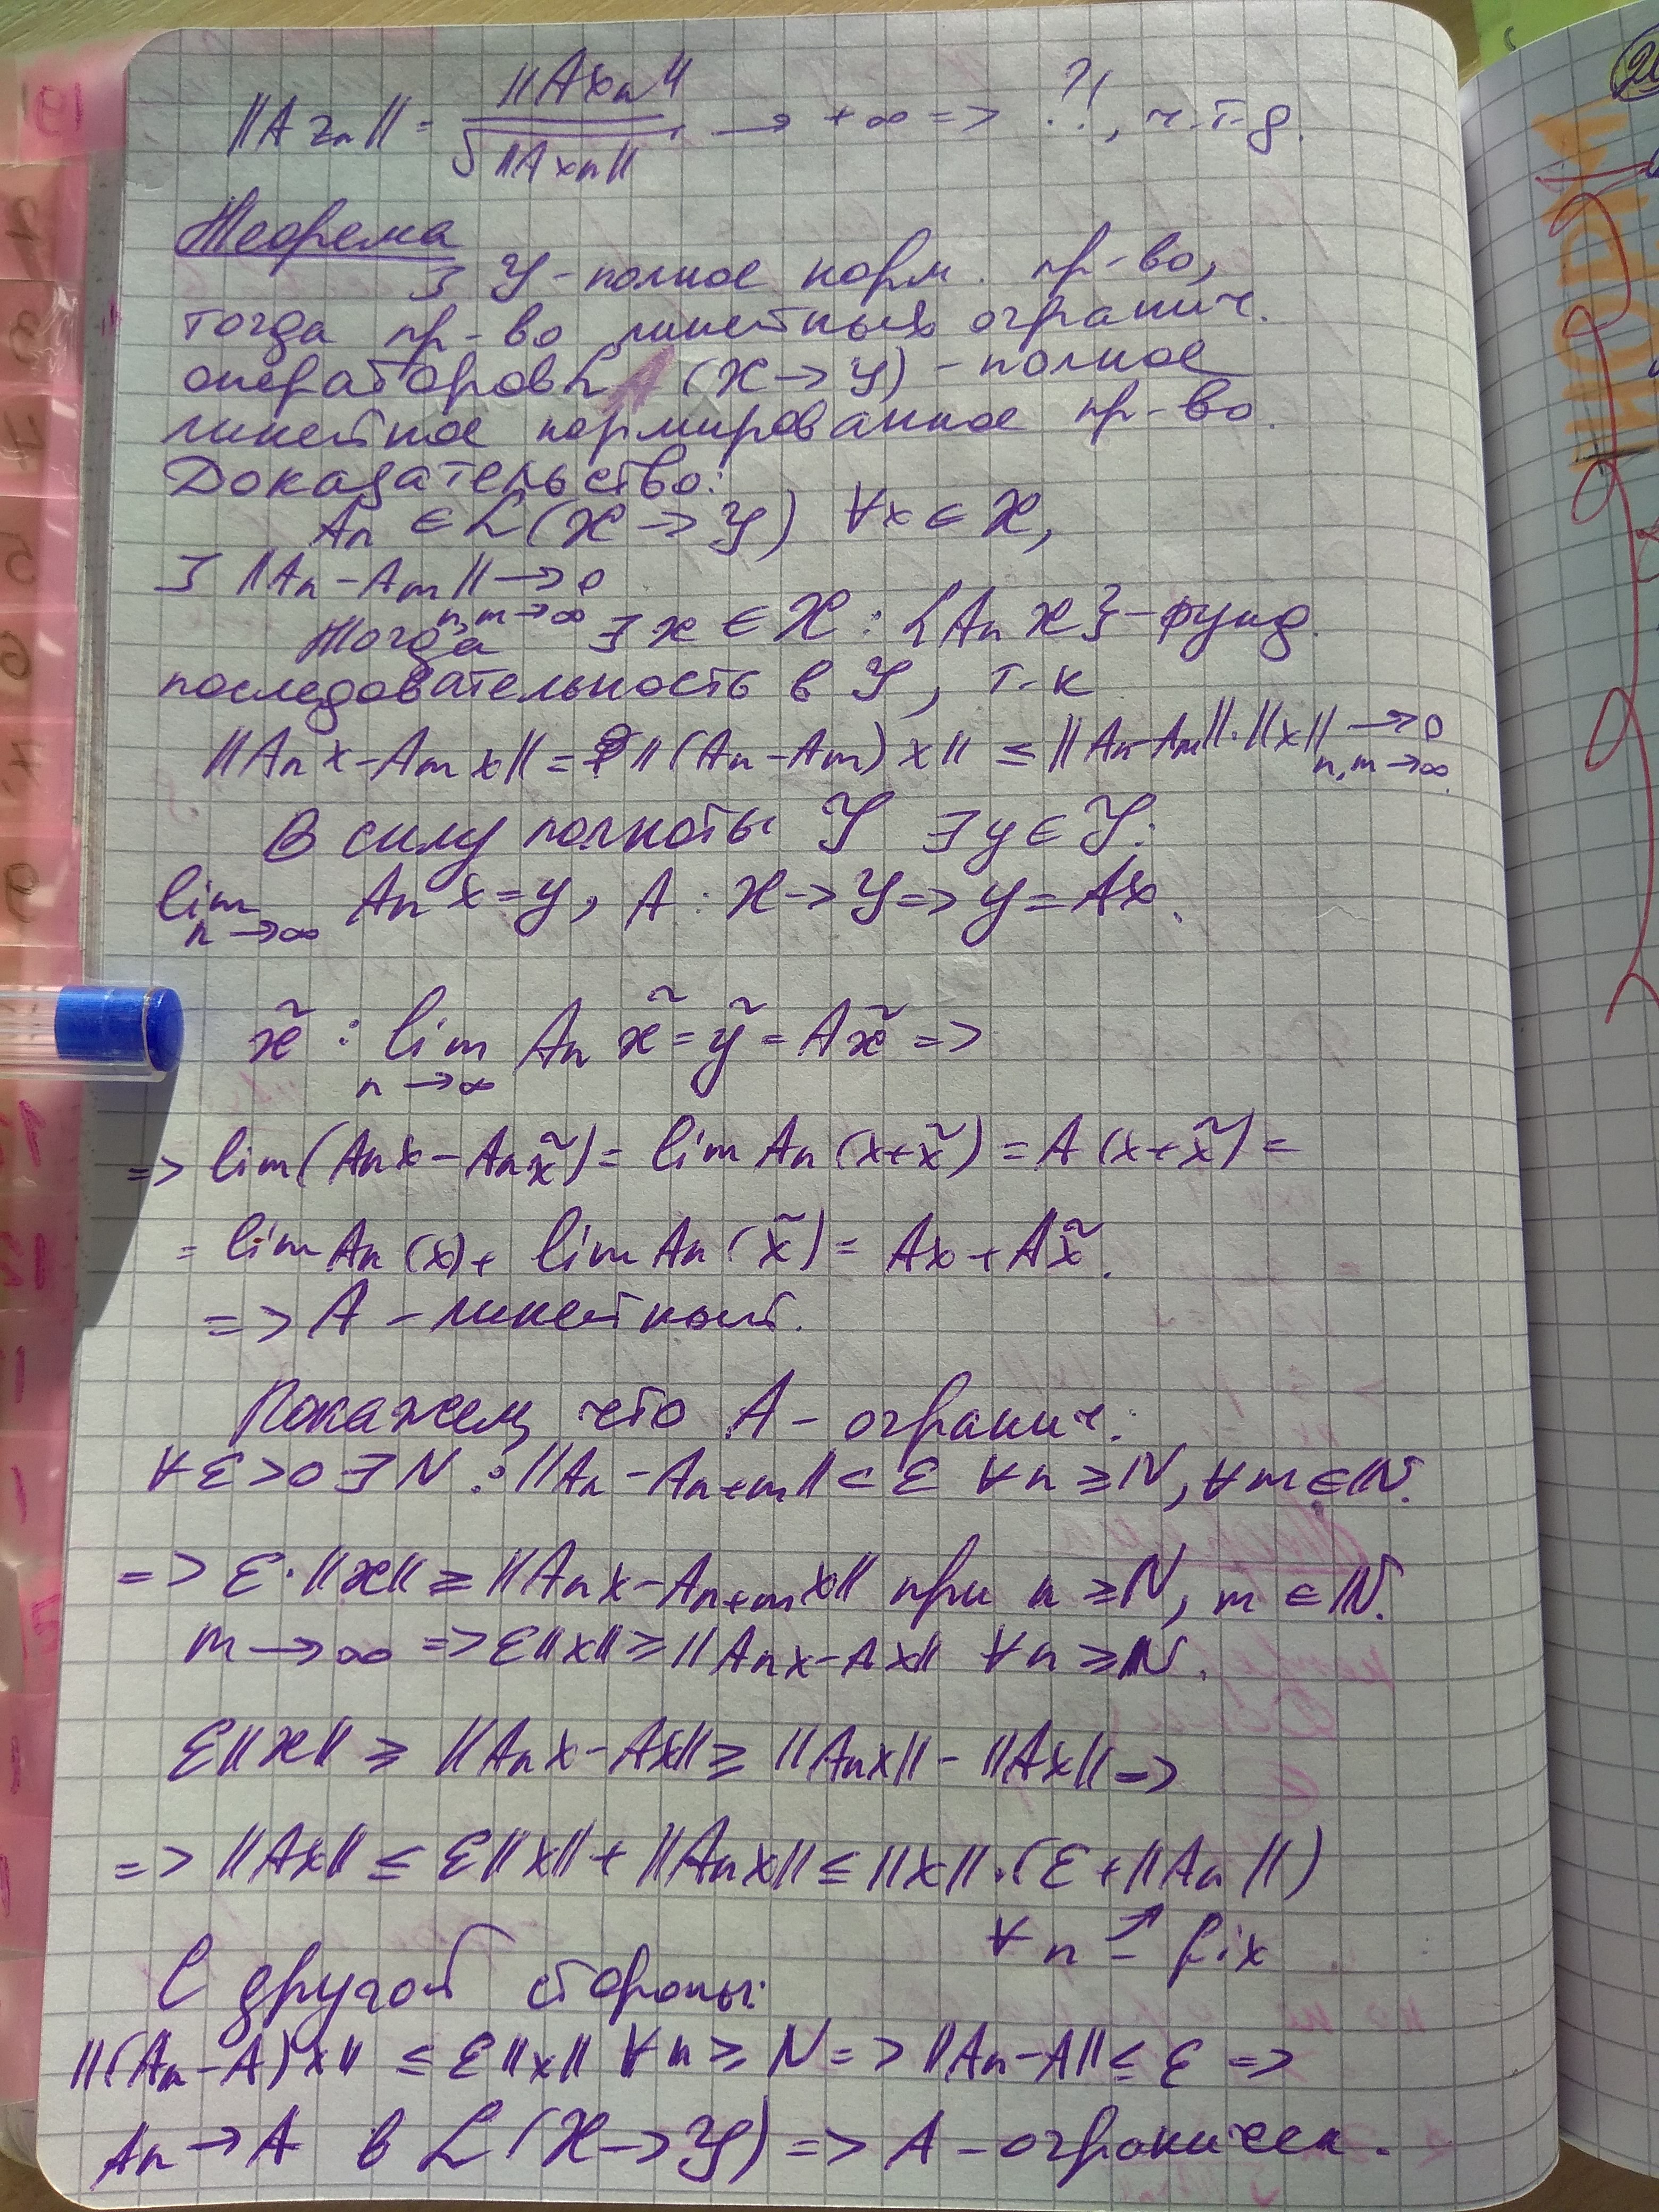 ||A zₙ|| = ||Axₙ|| / √||Axₙ|| → +∞ => ?!, ч.т.д.
Теорема
] Y - полное норм. пр-во,
тогда пр-во линейных огранич.
операторов L (X → Y) - полное
линейное нормированное пр-во.
Доказательство:
Aₙ ∈ L(X → Y) ∀x ∈ X,
] ||Aₙ - Aₘ|| → 0
n,m → ∞
Тогда ∃ x ∈ X : {Aₙ x} - фунд.
последовательность в Y, т-к
||Aₙ x - Aₘ x|| = || (Aₙ - Aₘ) x || ≤ ||Aₙ - Aₘ||·||x|| → 0
n,m → ∞.
В силу полноты Y ∃ y ∈ Y:
lim Aₙ x = y, A : X → Y => y = Ax.
n → ∞
x̃ : lim Aₙ x̃ = ỹ = Ax̃ =>
n → ∞
=> lim(Aₙx - Aₙx̃) = lim Aₙ (x + x̃) = A (x + x̃) =
= lim Aₙ (x) + lim Aₙ (x̃) = Ax + Ax̃.
=> A - линейный.
Покажем, что A - огранич:
∀ε > 0 ∃ N : ||Aₙ - Aₙ₊ₘ|| < ε ∀n ≥ N, ∀m ∈ ℕ.
=> ε·||x|| ≥ ||Aₙ x - Aₙ₊ₘ x|| при n ≥ N, m ∈ ℕ.
m → ∞ => ε||x|| ≥ ||Aₙ x - A x|| ∀n ≥ N.
ε||x|| ≥ ||Aₙ x - Ax|| ≥ ||Aₙx|| - ||Ax|| =>
=> ||Ax|| ≤ ε||x|| + ||Aₙ x|| ≤ ||x||·(ε + ||Aₙ||)
∀ n - fix
С другой стороны:
||(Aₙ - A) x|| ≤ ε||x|| ∀n ≥ N => ||Aₙ - A|| ≤ ε =>
Aₙ → A в L (X → Y) => A - ограничен.